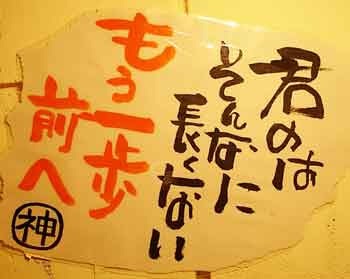 君のは
そんなに
長くない
もう一歩
前へ
神